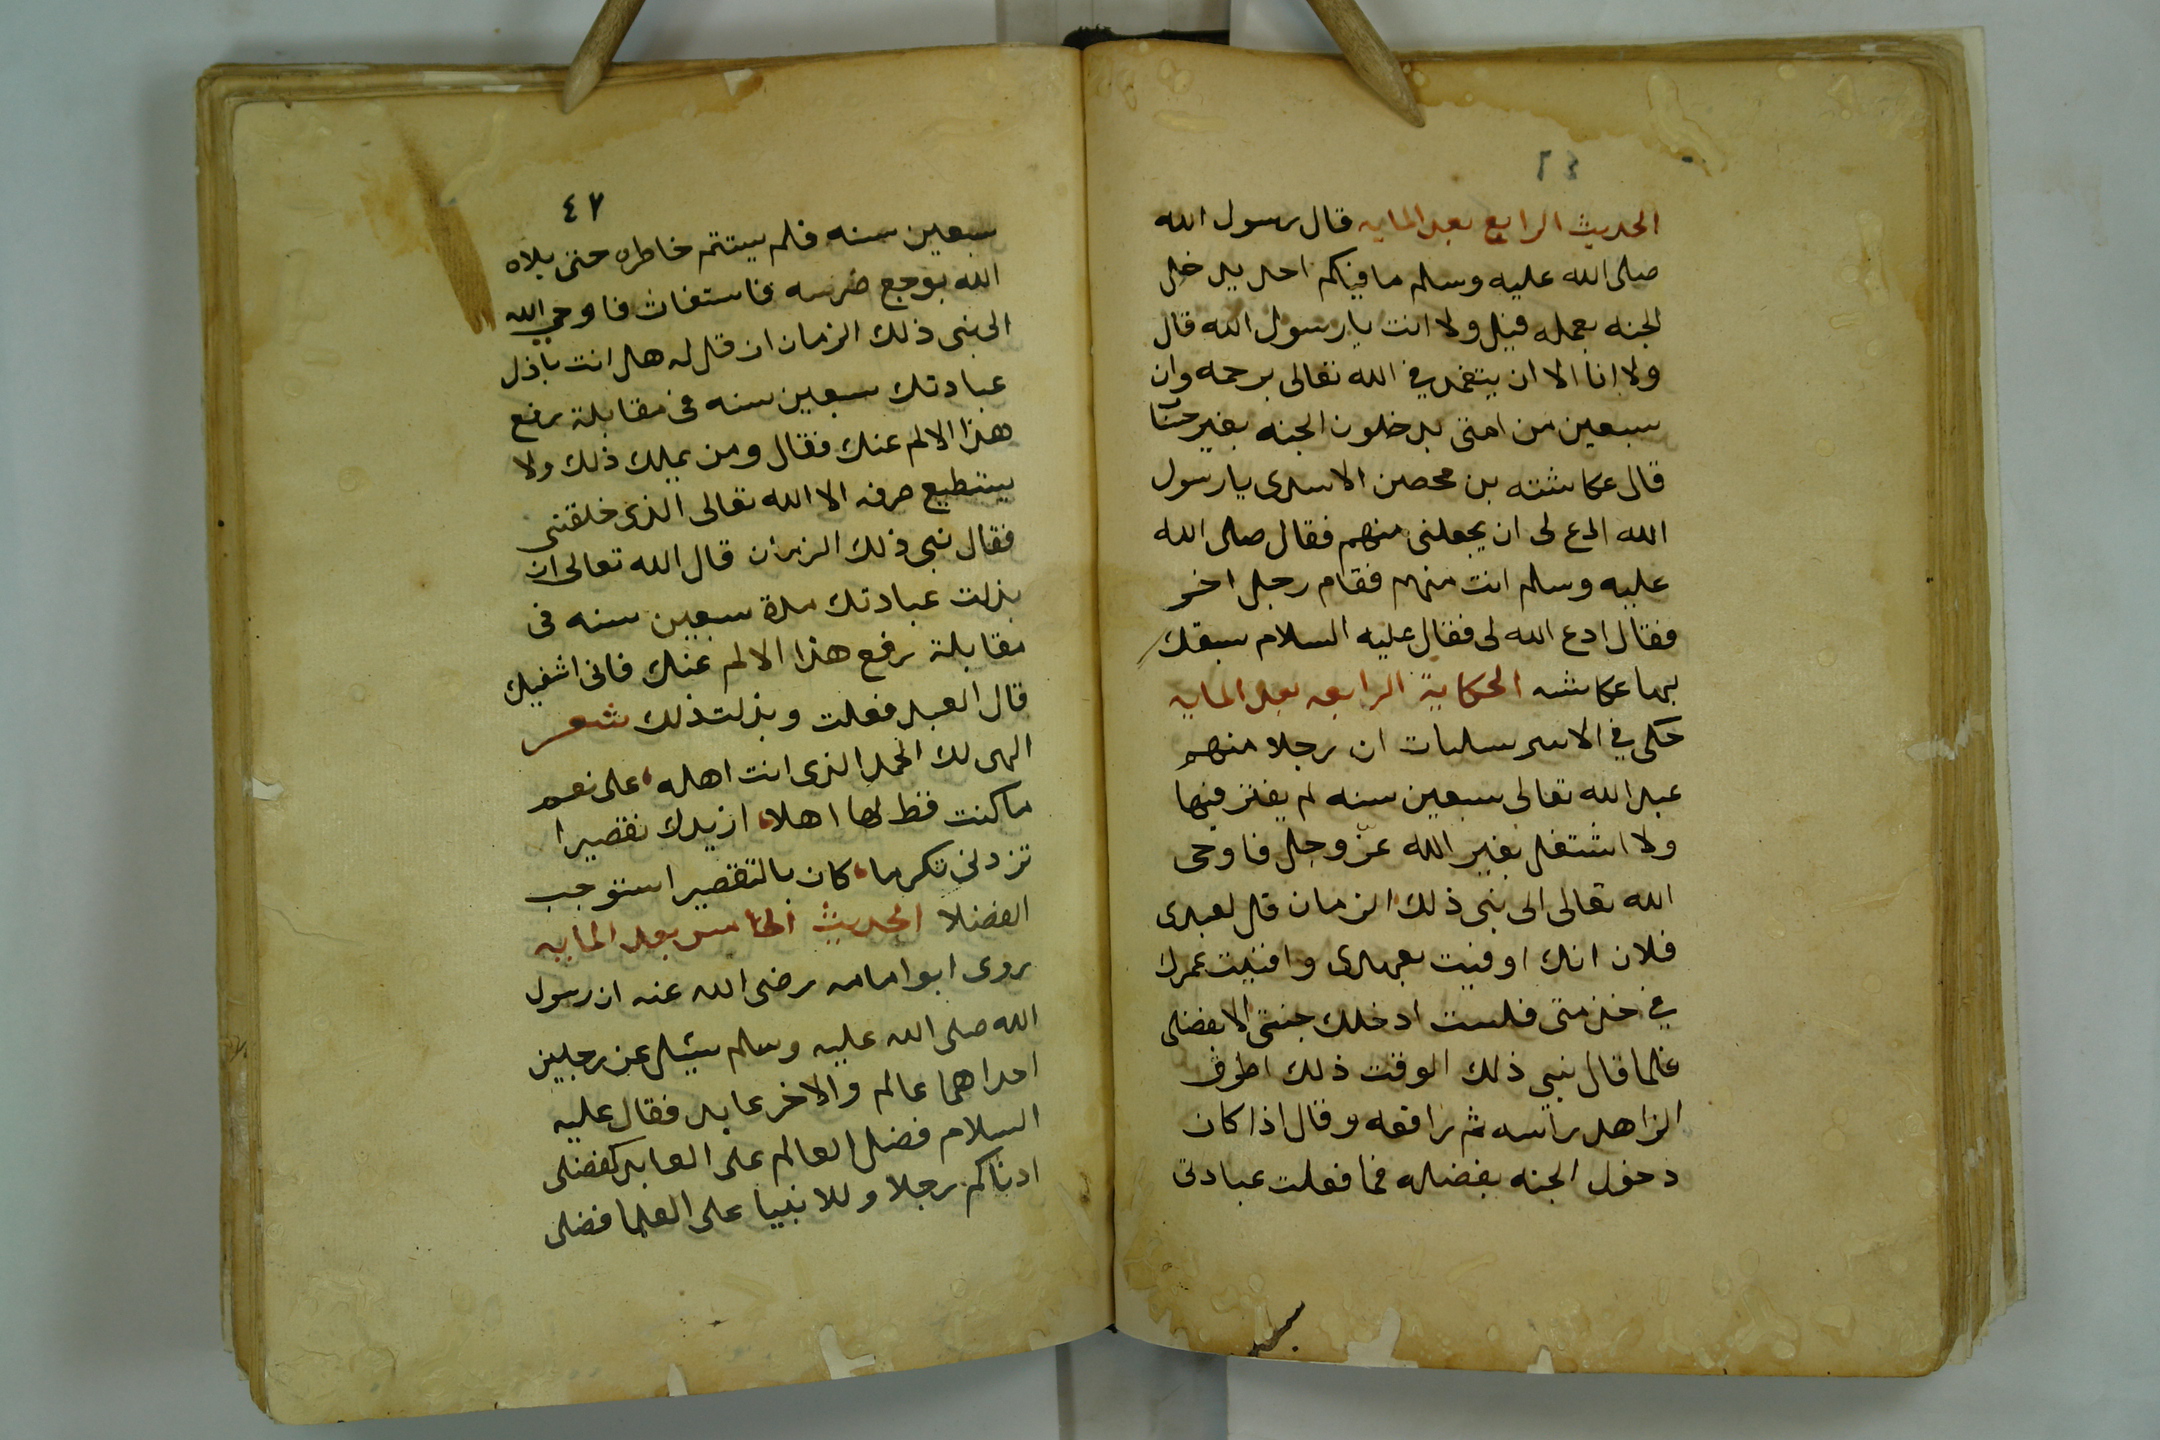 ٤٦
الحديث الرابع بعد المايه قال رسول الله
صلى الله عليه وسلم ما فيكم احد يدخل
الجنه بعمله قيل ولا انت يا رسول الله قال
ولا انا الا ان يتغمدني الله تعالى برحمه وان
سبعين من امتي يدخلون الجنه بغير حسا
قال عكاشته بن محصن الاسدى يا رسول
الله ادع لى ان يجعلنى منهم فقال صلى الله
عليه وسلم انت منهم فقام رجل اخر
فقال ادع الله لى فقال عليه السلام سبقك
بها عكاشه الحكاية الرابعه بعد المايه
حكى في الاسرسليات ان رجلا منهم
عبد الله تعالى سبعين سنه لم يفتر فيها
ولا اشتغل بغير الله عزّ وجل فاوحى
الله تعالى الى نبى ذلك الزمان قل لعبدى
فلان انك اوفيت بعهدى وافنيت عمرك
في خدمتى فلست ادخلك جنتى الا بفضلى
فلما قال نبي ذلك الوقت ذلك اطرق
الزاهد راسه ثم رافعه وقال اذا كان
دخول الجنه بفضله فما فعلت عبادتى
٤٧
سبعين سنه فلم يستتم خاطره حتى بلاه
الله بوجع ضرسه فاستغاث فاوحي الله
الى نبى ذلك الزمان ان قل له هل انت باذل
عبادتك سبعين سنه فى مقابلة رفع
هذا الالم عنك فقال ومن يملك ذلك ولا
يستطيع صرفه الا الله تعالى الذى خلقني
فقال نبي ذلك الزمان قال الله تعالى ان
بذلت عبادتك مدة سبعين سنه فى
مقابلة رفع هذا الالم عنك فانى اشفيك
قال العبد فعلت وبذلت ذلك شعر
الهى لك الحمد الذى انت اهله على نعم
ما كنت قط لها اهلا ازيدك تقصيرا
تزدنى تكرما كان بالتقصير استوجب
الفضلا الحديث الخامس بعد المايه
روى ابو امامه رضى الله عنه ان رسول
الله صلى الله عليه وسلم سيئل عن رجلين
احداهما عالم والاخر عابد فقال عليه
السلام فضل العالم على العابد كفضلى
ادناكم رجلا وللانبيا على العلما فضلى